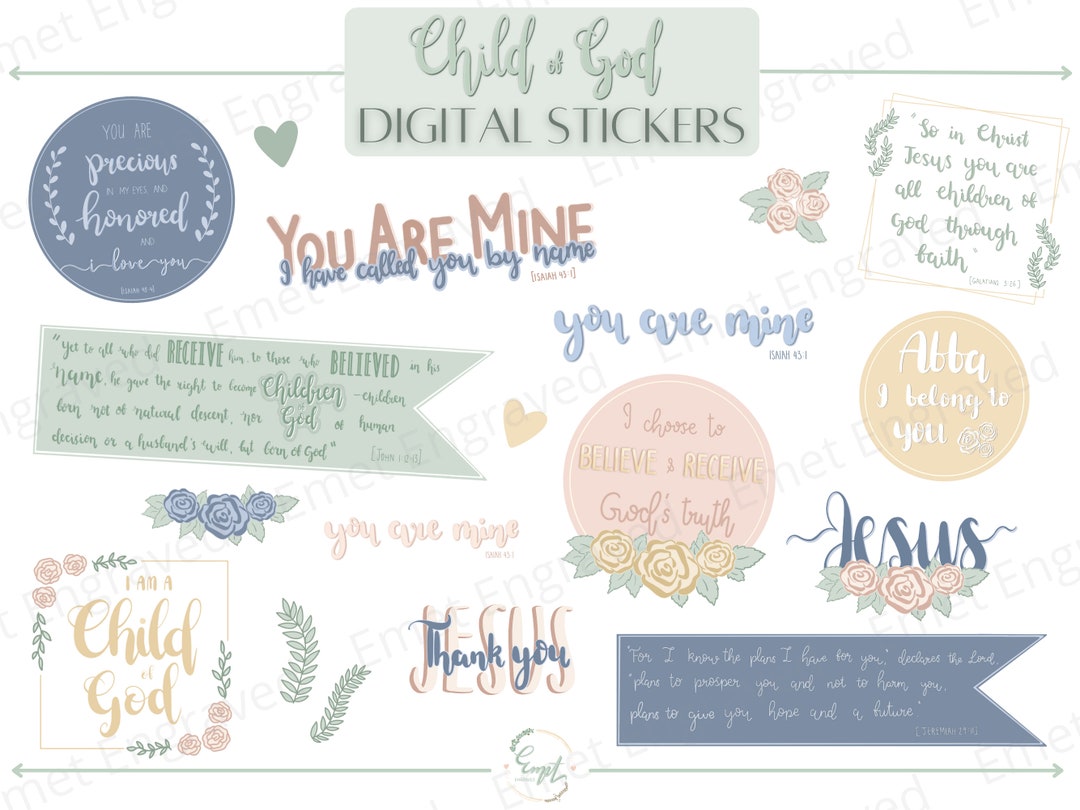 Child of God
DIGITAL STICKERS
YOU ARE
precious
IN MY EYES, AND
honored
AND
i love you
[ISAIAH 43:4]
YOU ARE MINE
I have called you by name
[ISAIAH 43:1]
"So in Christ
Jesus you are
all children of
God through
faith"
[GALATIANS 3:26]
you are mine
ISAIAH 43:1
"Yet to all who did RECEIVE him, to those who BELIEVED in his
name, he gave the right to become Children of God - children
born not of natural descent, nor of human
decision or a husband's will, but born of God"
[JOHN 1:12-13]
I choose to
BELIEVE & RECEIVE
God's truth
Abba
I belong to
you
you are mine
ISAIAH 43:1
Jesus
I AM A
Child
of
God
JESUS
Thank you
"For I know the plans I have for you," declares the Lord,
"plans to prosper you and not to harm you,
plans to give you hope and a future."
[JEREMIAH 29:11]
Emet
ENGRAVED
Emet Engraved